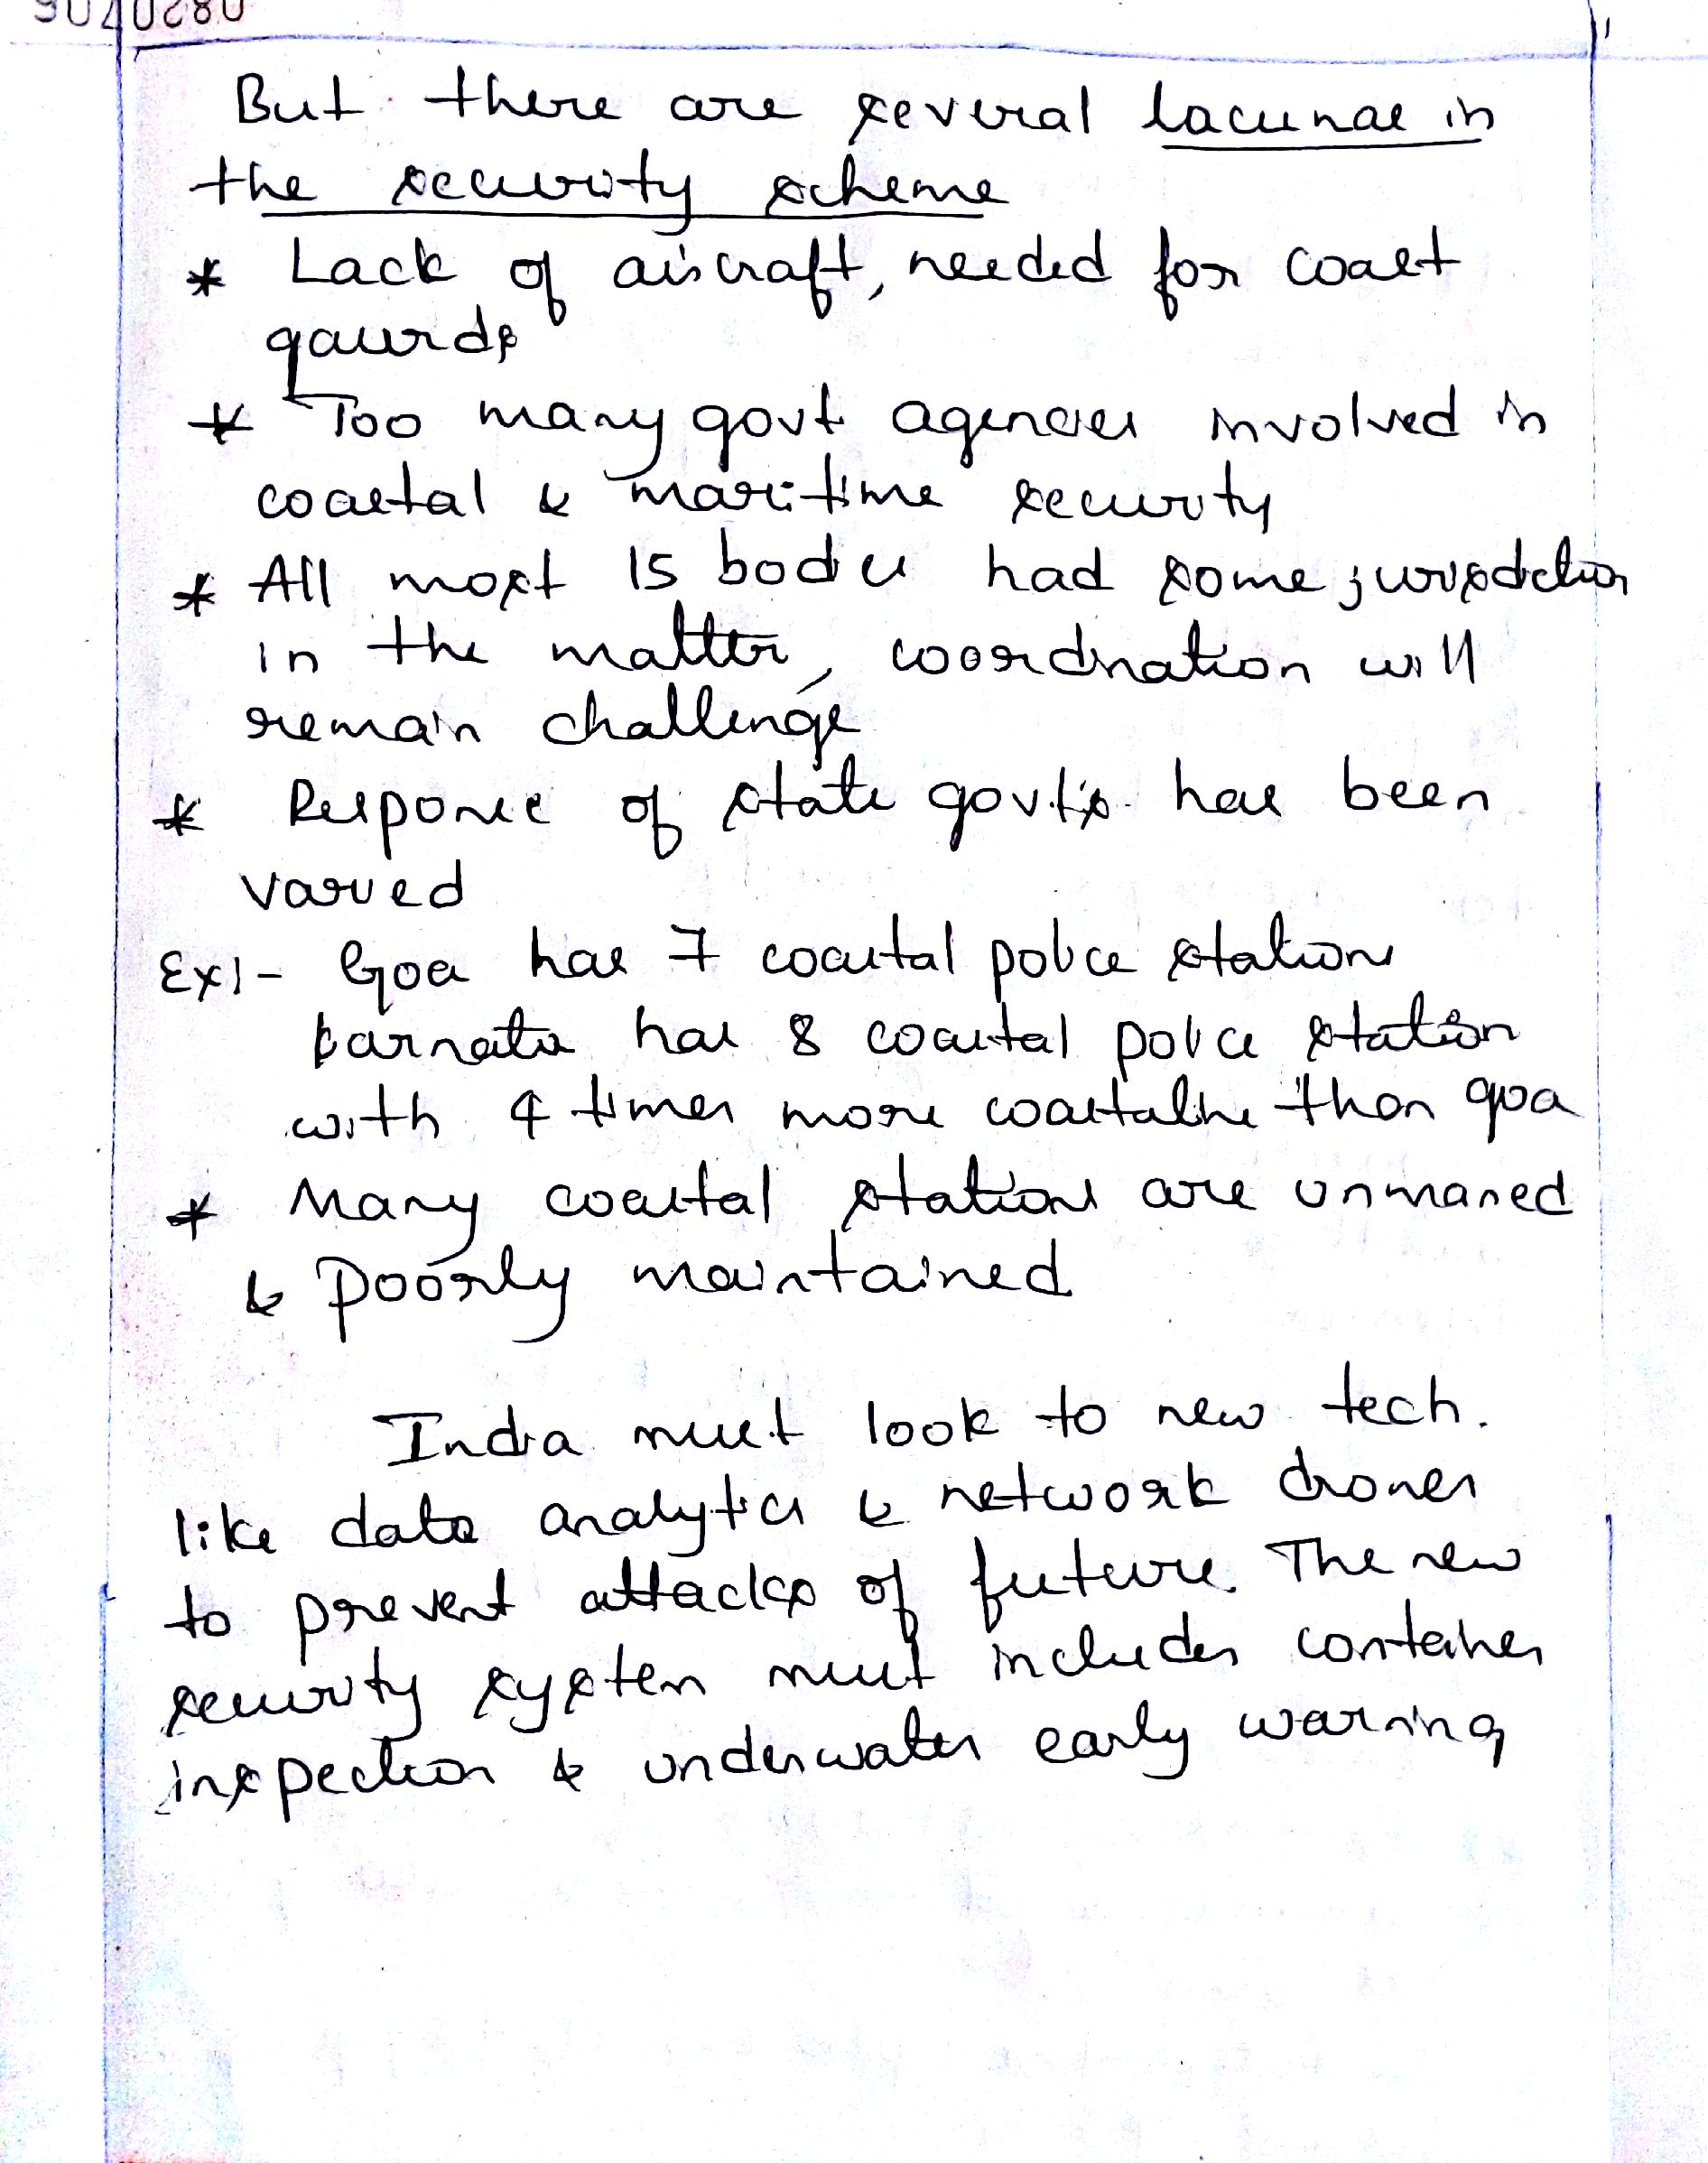 But there are several lacunae in
the security scheme
* Lack of aircraft, needed for coast
gaurds
* Too many govt agencies involved in
coastal & maritime security
* All most 15 bodies had some jurisdiction
in the matter, coordination will
remain challenge
* Response of state govt's has been
varied
Ex1- Goa has 7 coastal police stations
karnata has 8 coastal police station
with 4 times more coastaline than goa
* Many coastal stations are unmaned
& Poorly maintained
India must look to new tech.
like data analytics & network drones
to prevent attacks of future. The new
security system must includes container
inspection & underwater early warning